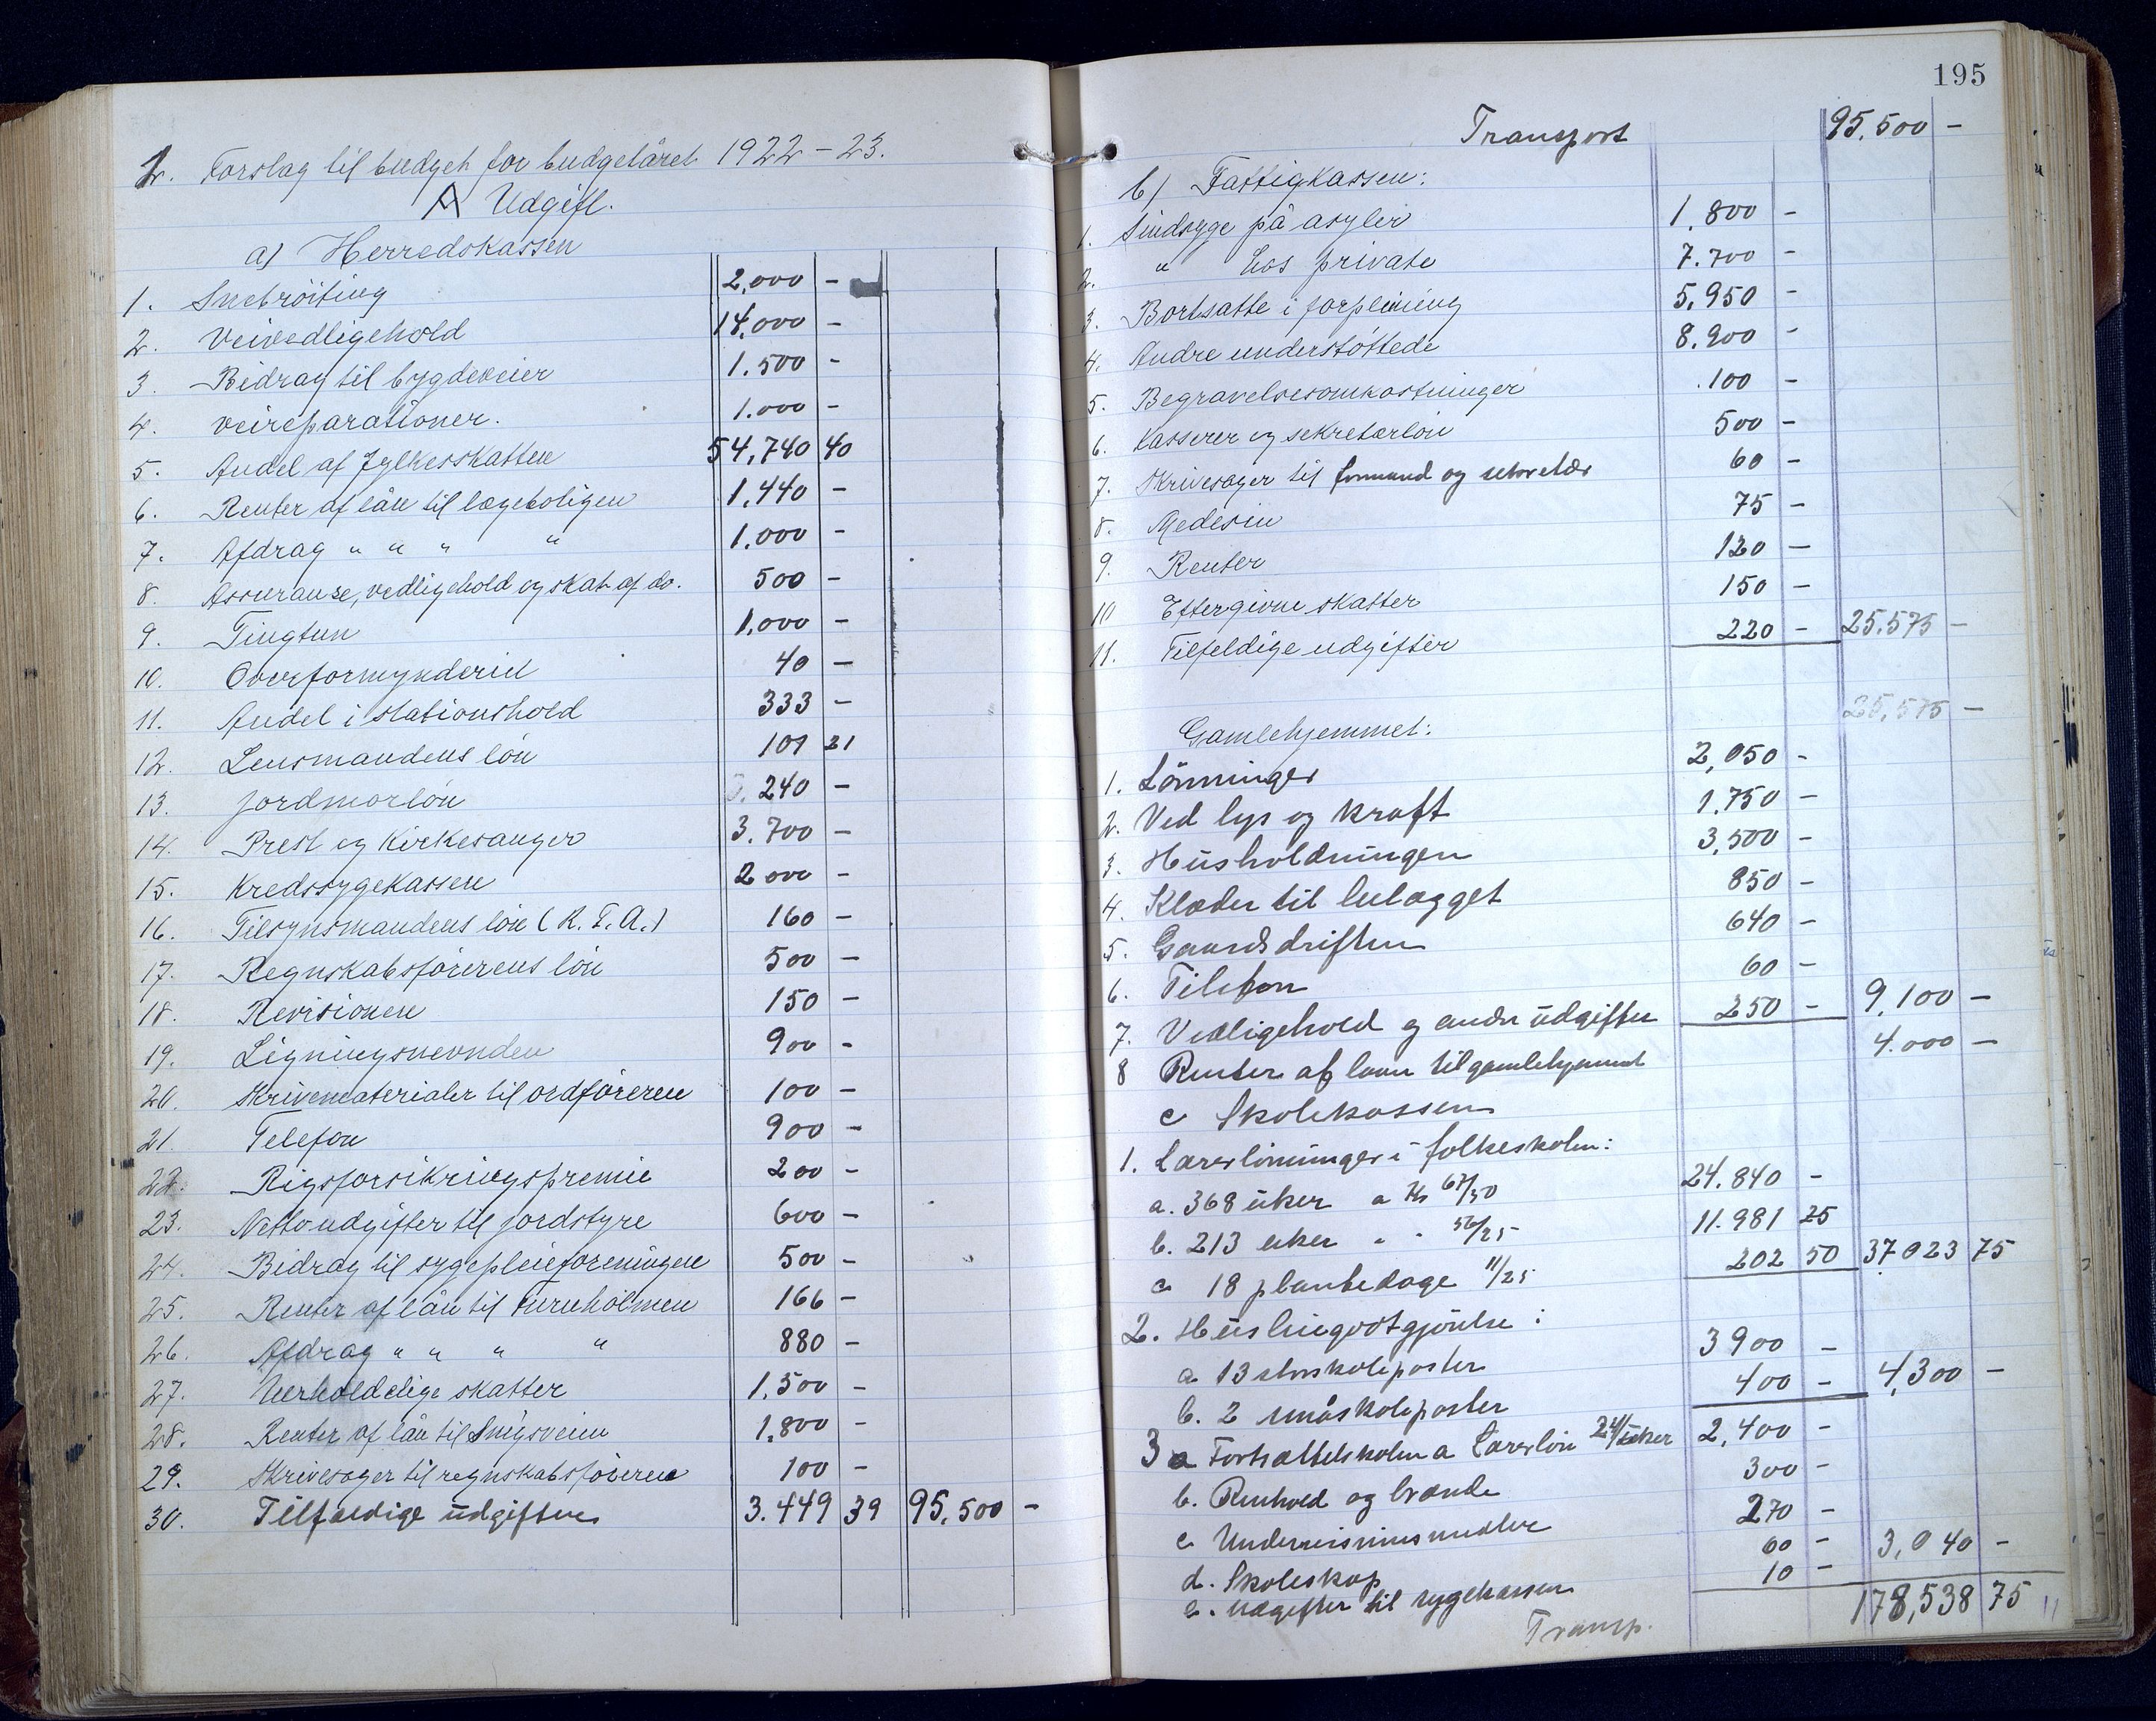 1. Forslag til budget for budgetåret 1922-23.
A Udgift.
a) Herredskassen
1. Snebröiting 2,000 -
2. Veivedligehold 14,000 -
3. Bidrag til bygdeveier 1.500 -
4. Veireparationer. 1.000 -
5. Andel af Fylkesskatten 54,740 40
6. Renter af lån til lægeboligen 1,440 -
7. Afdrag " " " " 1.000 -
8. Assuranse, vedligehold og skat af do. 500 -
9. Tingtun 1,000 -
10. Overformynderiet 40 -
11. Andel i stationshold 333 -
12. Lensmandens lön 101 21
13. Jordmorlön 240 -
14. Prest og Kirkesanger 3.700 -
15. Kredssygekassen 2000 -
16. Tilsynsmandens lön (R. T. A.) 160 -
17. Regnskabsförerens lön 500 -
18. Revisionen 150 -
19. Ligningsnevnden 900 -
20. Skrivematerialer til ordföreren 100 -
21. Telefon 900 -
22. Rigsforsikringspremie 200 -
23. Nettoudgifter til jordstyre 600 -
24. Bidrag til sygepleieforeningen 500 -
25. Renter af lån til Furuholmen 166 -
26. Afdrag " " " " 880 -
27. Uerholdelige skatter 1,500 -
28. Renter af lån til Snigsveien 1.800 -
29. Skrivesager til regnskabsföreren 100 -
30. Tilfældige udgifter 3.449 39 95,500 -
195
Transport 95.500 -
b) Fattigkassen:
1. Sindsyge på asyler 1,800 -
2. " hos private 7.700 -
3. Bortsatte i forpleining 5,950 -
4. Andre understöttede 8.900 -
5. Begravelsesomkostninger 100 -
6. Kasserer og sekretærlön 500 -
7. Skrivesager til formand og sekretær 60 -
8. Medesin 75 -
9. Renter 120 -
10 Eftergivne skatter 150 -
11. Tilfeldige udgifter 220 - 25.575 -
25,575 -
Gamlehjemmet:
1. Lönninger 2,050 -
2. Ved lys og kraft 1.750 -
3. Husholdningen 3,500 -
4. Klæder til belægget 850 -
5. Gaardsdriften 640 -
6. Telefon 60 -
7. Vedligehold og andre udgifter 250 - 9,100 -
8 Renter af laan til gamlehjemmet 4.000 -
c Skolekassen
1. Lærerlönninger i folkeskolen:
a. 368 uker a Kr 67/50 24.840 -
b. 213 uker " " 56/25 11.981 25
c 18 plantedage 11/25 202 50 37023 75
2. Huslingodtgjörelse :
a 13 storskoleposter 3900 -
b. 2 småskoleposter 400 - 4,300 -
3 a Fortsættelsskolen a Lærerlön 24/uker 2,400 -
b. Renhold og brænde 300 -
c Undervisningsmidler 270 -
d. Skoleskap 60 - 3,040 -
e. Udgifter til sygekassen 10 -
Transp. 178,538 75